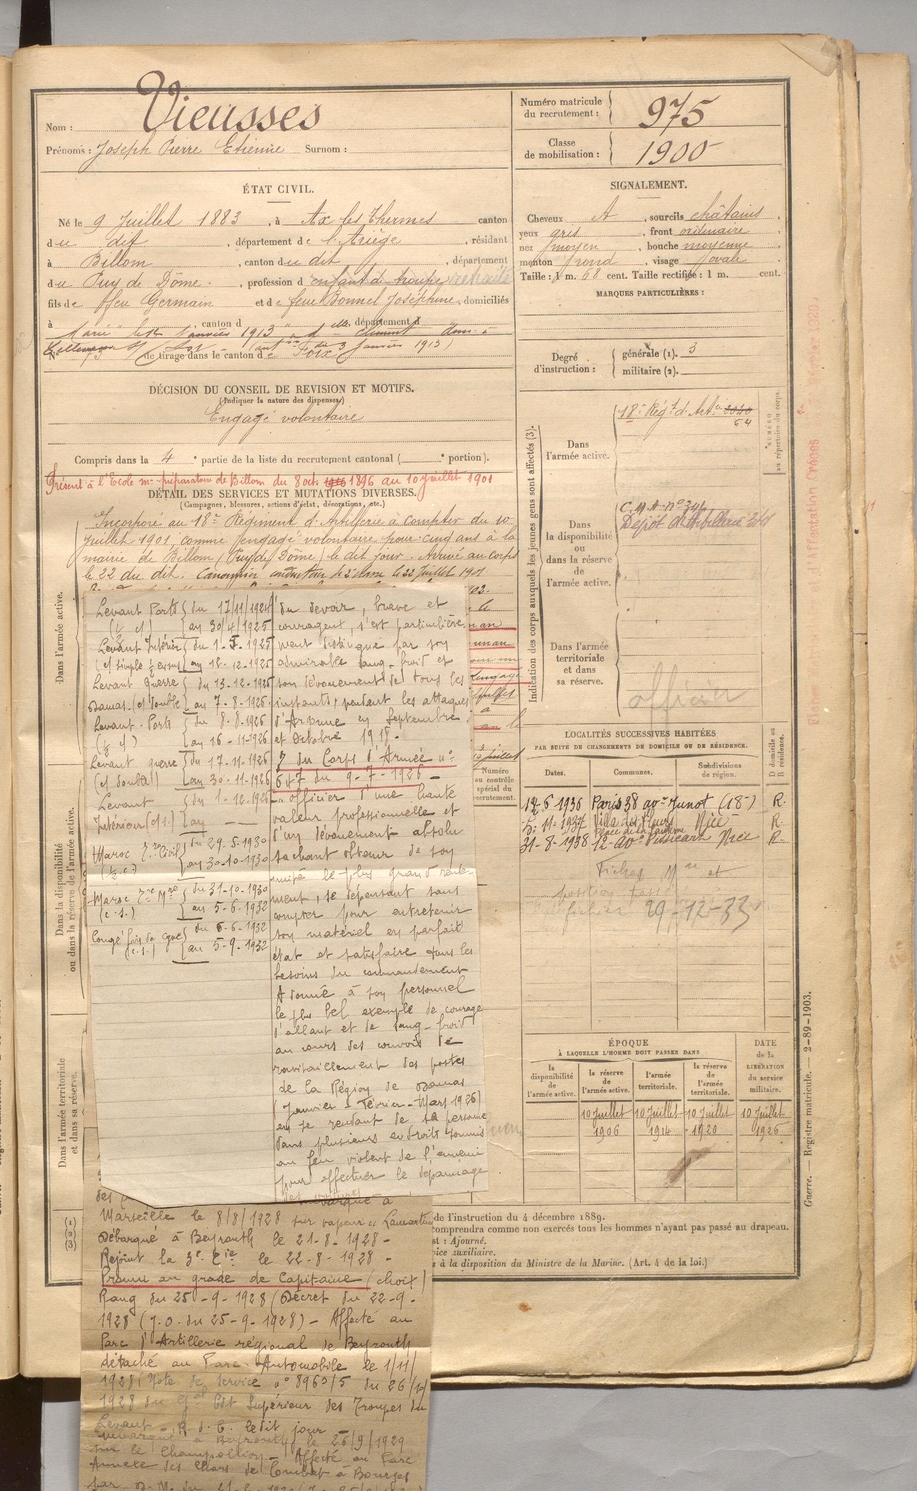 Nom : Vieusses
Prénoms : Joseph Pierre Etienne Surnom :
Numéro matricule
du recrutement : 975
Classe
de mobilisation : 1900
ÉTAT CIVIL.
Né le 9 Juillet 1883, à Ax les Thermes canton
du dit, département de l'Ariège, résidant
à Billom, canton du dit, département
du Puy de Dôme, profession d'enfant de troupe
fils de feu Germain et de feue Bonnel Joséphine, domiciliés
à canton d département d
Marié le Janvier 1913
N° de tirage dans le canton de Foix 3 Janvier 1913)
SIGNALEMENT.
Cheveux A, sourcils châtains,
yeux gris, front ordinaire
nez moyen, bouche moyenne
menton rond, visage ovale
Taille : 1 m. 68 cent. Taille rectifiée : 1 m. cent.
MARQUES PARTICULIÈRES :
Degré
d'instruction :
générale (1). 3
militaire (2).
DÉCISION DU CONSEIL DE REVISION ET MOTIFS.
(Indiquer la nature des dispenses)
Engagé volontaire
Compris dans la 4e partie de la liste du recrutement cantonal ( e portion).
Présent à l'Ecole mre préparatoire de Billom du 8 oct 1896 au 10 juillet 1901
DÉTAIL DES SERVICES ET MUTATIONS DIVERSES.
(Campagnes, blessures, actions d'éclat, décorations, etc.)
Incorporé au 18e Régiment d'Artillerie à compter du 10
Juillet 1901 comme engagé volontaire pour cinq ans à la
mairie de Billom (Puy de Dôme) le dit jour. Arrivé au corps
le 22 du dit. Canonnier conducteur de 2e classe le 22 Juillet 1901
Dans l'armée active.
Dans la disponibilité
ou dans la réserve de l'armée active.
Dans l'armée territoriale
et dans sa réserve.
Levant Ports du 17/11/1924
au 30/4/1925
Levant Intérieur du 1-5-1925
(cf simple) au 12-12-1925
Levant guerre du 13-12-1925
Damas (cf double) au 7-8-1926
Levant Ports du 8-8-1926
au 16-11-1926
Levant guerre du 17-11-1926
(cf double) au 30-11-1926
Levant du 1-12-1926
Intérieur (cf s.) au
Maroc Civil du 29-5-1930
au 30-10-1930
Maroc du 31-10-1930
(c.s.) au 5-6-1932
Congé fin de camp. du 6-6-1932
(c.s.) au 5-9-1932
du devoir, brave et
courageux, s'est particulière-
ment distingué par son
admirable sang-froid et
son dévouement de tous les
instants, pendant les attaques
d'Argonne en Septembre
et Octobre 1915-
O du Corps d'Armée n°
647 du 9-7-1926-
"officier d'une haute
valeur professionnelle et
d'un dévouement absolu
sachant obtenir de son
unité le plus grand rende-
ment, se dépensant sans
compter pour entretenir
son matériel en parfait
état et satisfaire tous les
besoins du commandement
A donné à son personnel
le plus bel exemple de courage
d'allant et de sang-froid
au cours des convois de
ravitaillement des postes
de la Région de Damas
(Janvier à Février-Mars 1926)
en se rendant de sa personne
dans plusieurs endroits soumis
au feu violent de l'ennemi
pour effectuer le dépannage
Marseille le 8/8/1928 par vapeur "Lamartine"
Débarqué à Beyrouth le 21-8-1928-
Rejoint la 3e Cie le 22-8-1928-
Promu au grade de Capitaine (choix)
Rang du 25-9-1928 (Décret du 22-9-
1928 (J.O. du 25-9-1928)- Affecté au
Parc d'Artillerie régional de Beyrouth
détaché au Parc Automobile le 1/11/
1928 (Note de Service n° 8960/5 du 26/
1928 du Gal Cdt Supérieur des Troupes du
Levant - R.d.C. le dit jour -
Embarqué à Beyrouth le 26/9/1929
sur le Champollion - Affecté au Parc
Annexe des Chars de Combat à Bourges
Indication des corps auxquels les jeunes gens sont affectés (3).
Dans
l'armée active.
18e Régt d'Artie
64
NUMÉRO
au répertoire du corps.
Dans
la disponibilité
ou
dans la réserve
de
l'armée active.
C.M.A. n° 341
Dépôt d'Artillerie 341
Dans l'armée
territoriale
et dans
sa réserve.
officier
LOCALITÉS SUCCESSIVES HABITÉES
PAR SUITE DE CHANGEMENTS DE DOMICILE OU DE RÉSIDENCE.
Dates. Communes. Subdivisions
de région. D domicile ou
R résidence.
12-6-1936 Paris 38 avue Junot (18e) R.
5-11-1937 Villa des Fleurs Nice R.
31-8-1938 12 avue Nice R.
Fiches Mre et
position
29-12-33
Numéro
au contrôle
spécial du
recrutement.
ÉPOQUE
À LAQUELLE L'HOMME DOIT PASSER DANS
DATE
de la
LIBÉRATION
du service
militaire.
la
disponibilité
de
l'armée active.
la réserve
de
l'armée active.
l'armée
territoriale.
la réserve
de
l'armée
territoriale.
10 Juillet 10 Juillet 10 Juillet 10 Juillet
1906 1914 1920 1926
de l'instruction du 4 décembre 1889.
comprendra comme non exercés tous les hommes n'ayant pas passé au drapeau.
st : Ajourné.
vice auxiliaire.
s à la disposition du Ministre de la Marine. (Art. 4 de la loi.)
Guerre. — Registre matricule. — 2-89-1903.